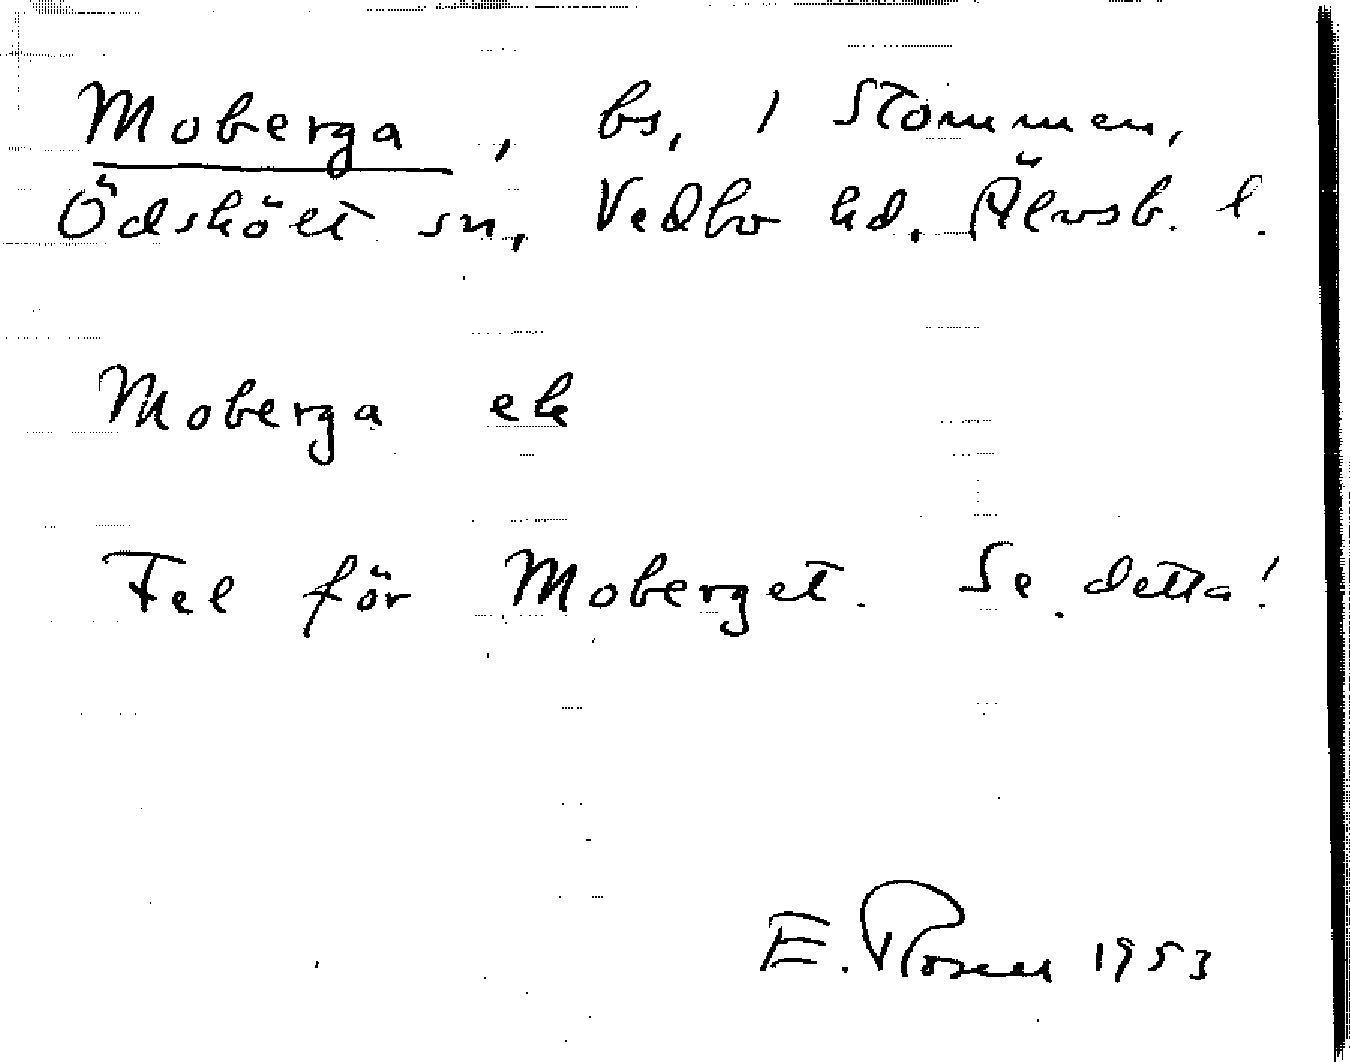 Moberga, bs, 1 Stommen,
Ödskölt sn, Vedbo hd. Älvsb. l.
Moberga ek
Fel för Moberget. Se detta!
E. Rosell 1953